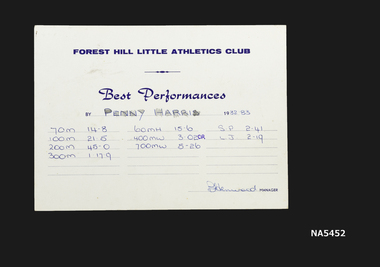 FOREST HILL LITTLE ATHLETICS CLUB
Best Performances
BY PENNY HARRIS 1982/83
70m 14.8 60mH 15.6 S.P 2.41
100m 21.5 400mW 3.02 LJ 2.19
200m 45.0 700mW 5.26
300m 1.17.9
MANAGER
NA5452